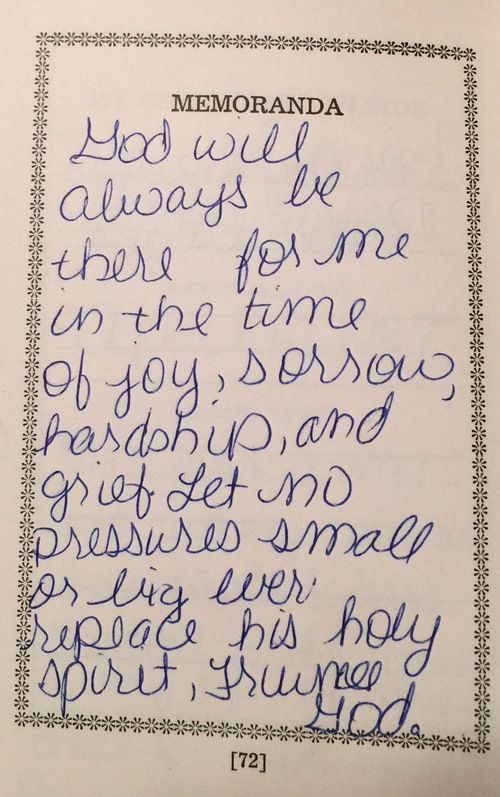 MEMORANDA
God will
always be
there for me
in the time
of joy, sorrow,
hardship, and
grief. Let no
pressures small
or big ever
replace his holy
spirit,
God.
[72]